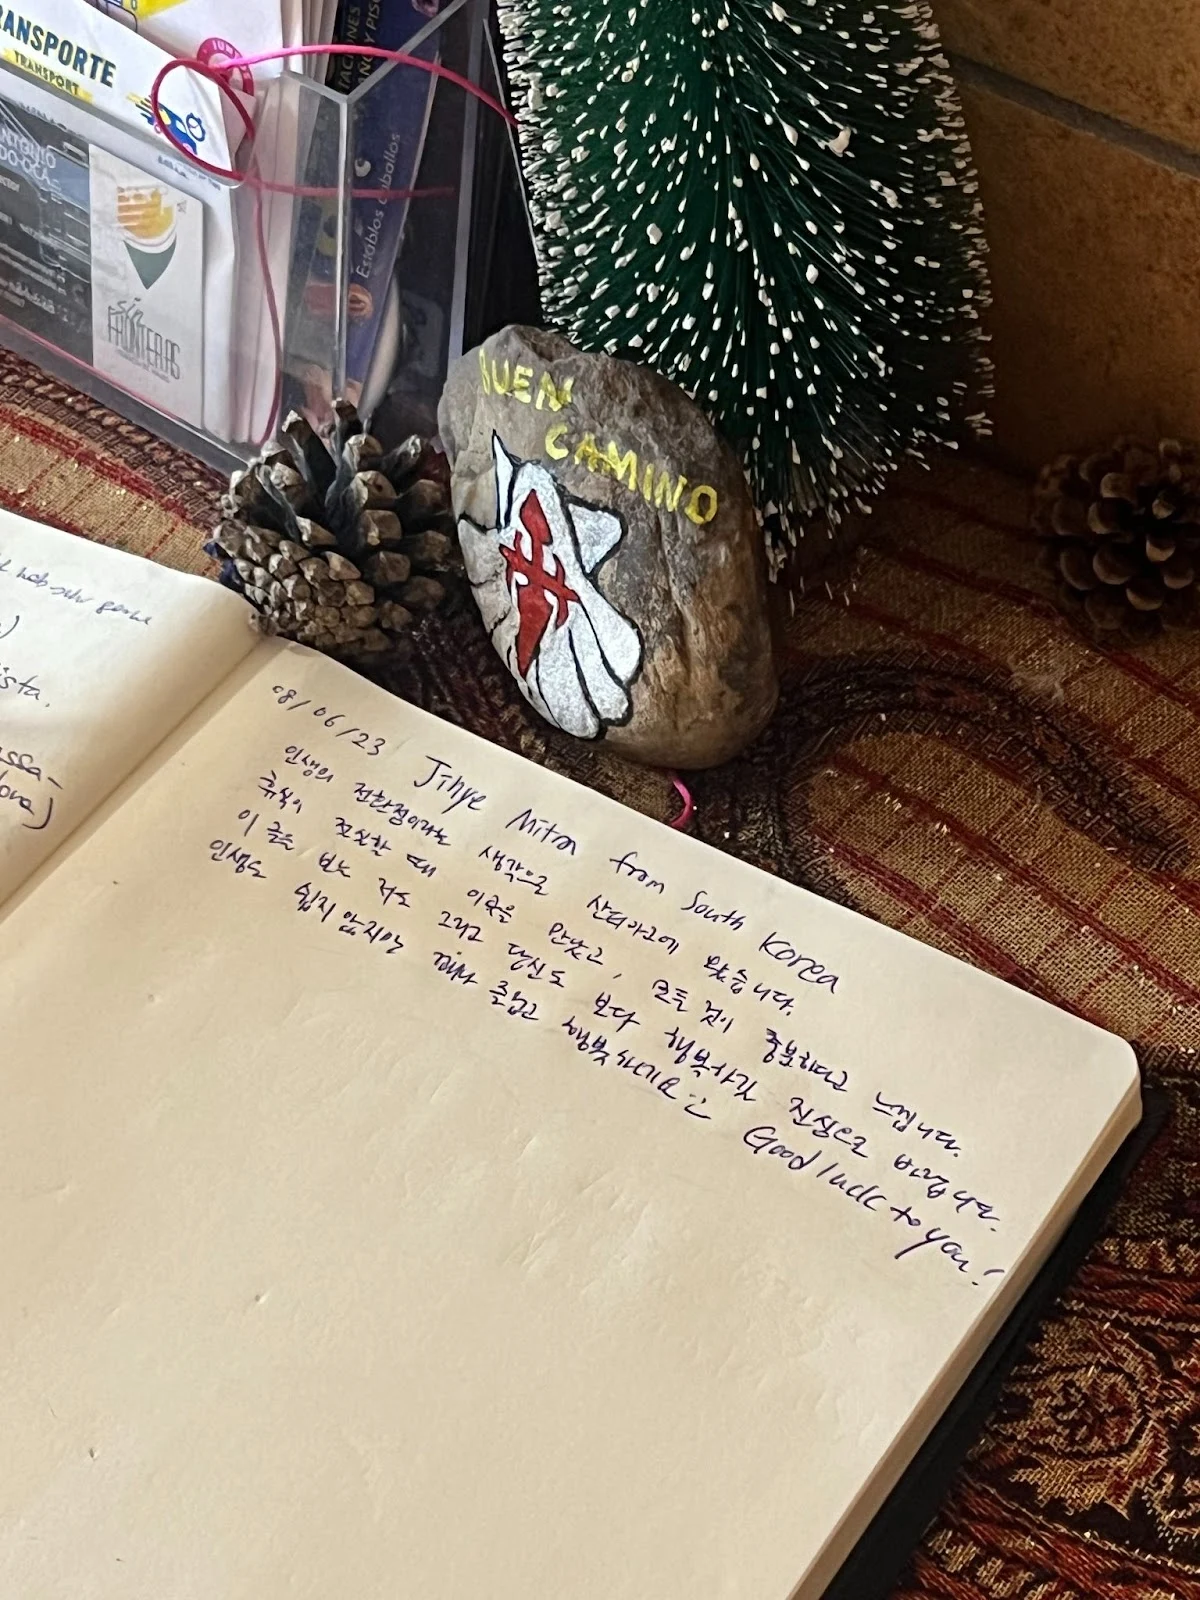 TRANSPORTE
TRANSPORT
ANTONIO
SIN
FRONTERAS
Establos Caballos
BUEN
CAMINO
ista.
08/06/23 Jihye Mitra from South Korea
인생의 전환점이라는 생각으로 산티아고에 왔습니다.
휴식이 필요할 때 이곳을 만났고, 모든 것이 충분하다고 느낍니다.
이 글을 보는 저도 그리고 당신도 보다 행복하길 진심으로 바랍니다.
인생도 쉽지 않지만 즐겁고 행복하세요 Good luck to you!